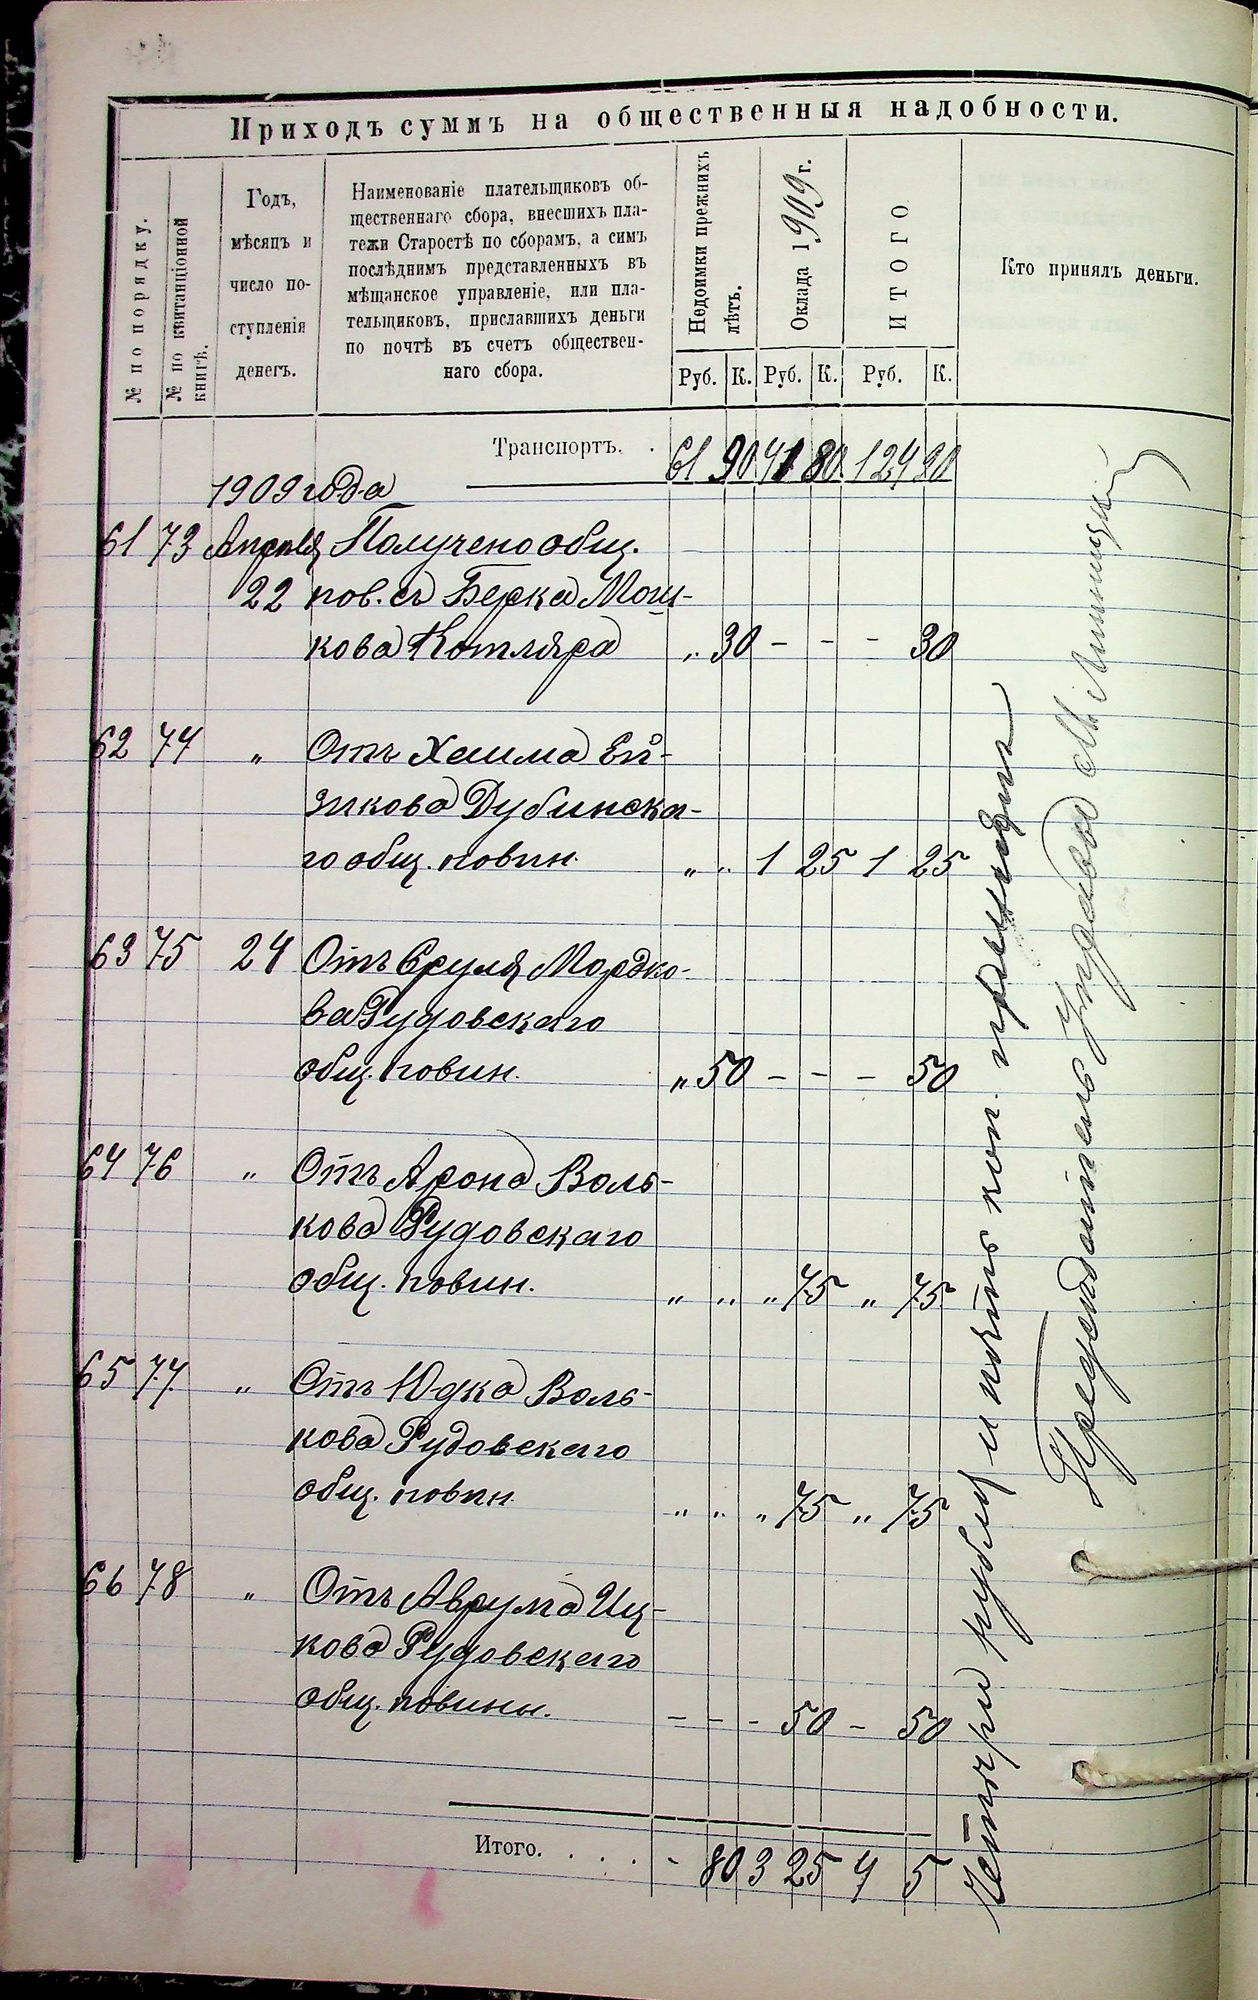 Приходъ суммъ на общественныя надобности.
№ по порядку.
№ по квитанціонной книгѣ.
Годъ,
мѣсяцъ и
число по-
ступленія
денегъ.
Наименованіе плательщиковъ об-
щественнаго сбора, внесшихъ пла-
тежи Старостѣ по сборамъ, а симъ
послѣднимъ представленныхъ въ
мѣщанское управленіе, или пла-
тельщиковъ, приславшихъ деньги
по почтѣ въ счетъ обществен-
наго сбора.
Недоимки прежнихъ лѣтъ.
Оклада 1909 г.
ИТОГО
Кто принялъ деньги.
Руб. К. Руб. К. Руб. К.
Транспортъ. . 61 90 41 80 124 90
1909 года
61 73 Апрѣля Получено общ.
22 пов. съ Берка Мош-
кова Котляра „ 30 - - - 30
62 74 „ Отъ Хаима Ей-
зикова Дубинска-
го общ. повин. „ „ 1 25 1 25
63 75 24 Отъ Сруля Мордко-
ва Рудовскаго
общ. повин. „ 50 - - - 50
64 76 „ Отъ Арона Воль-
кова Рудовскаго
общ. повин. „ „ „ 75 „ 75
65 77 „ Отъ Юдка Воль-
кова Рудовскаго
общ. повин. „ „ „ 75 „ 75
66 78 „ Отъ Аврума Иц-
кова Рудовскаго
общ. повины. - - - 50 - 50
Итого. . . . . - 80 3 25 4 5
Четыри рубля и пять коп.
Председатель Управы